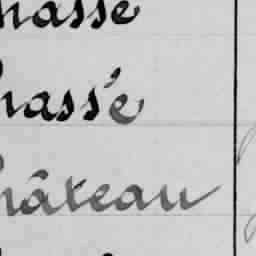 hassé
hassé
hâteau